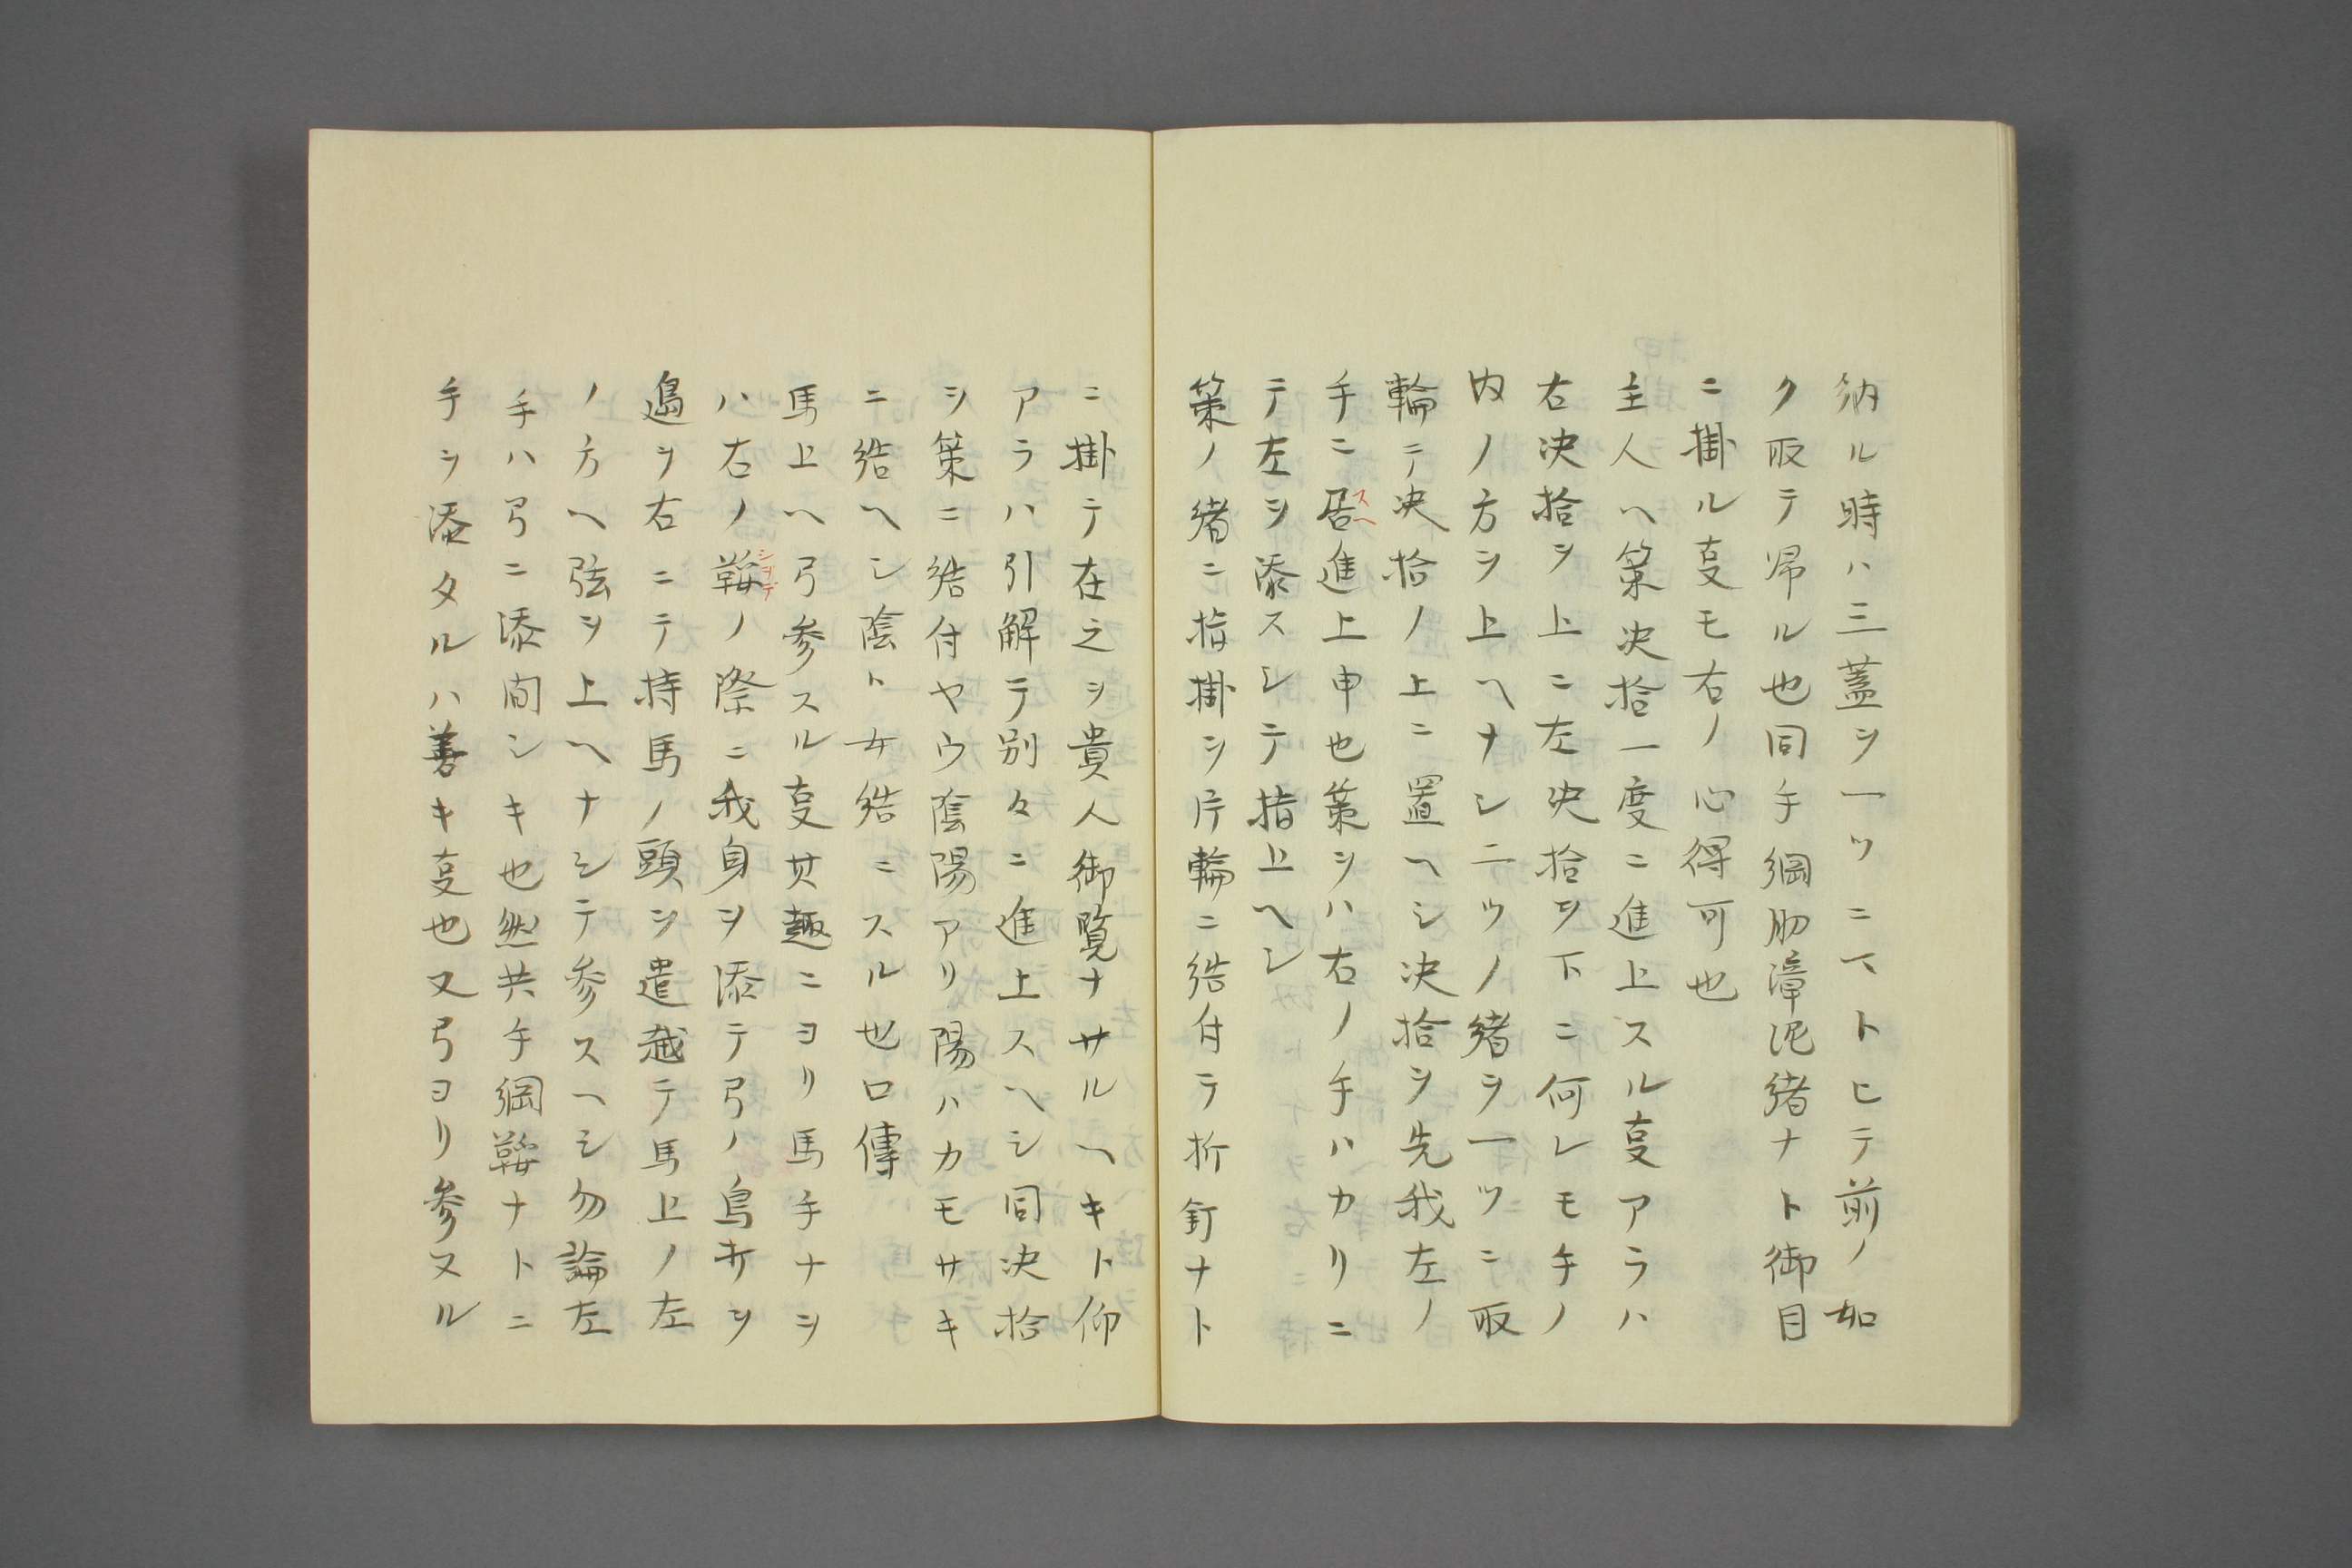 納ル時ハ三蓋ヲ一ツニマトヒテ前ノ如
ク取テ帰ル也同手綱肋障泥緒ナト御目
ニ掛ル叓モ右ノ心得可也
主人ヘ策决拾一度ニ進上スル叓アラハ
右决拾ヲ上ニ左决拾ヲ下ニ何レモ手ノ
内ノ方ヲ上ヘナシ二ツノ緒ヲ一ツニ取
輪テ决拾ノ上ニ置ヘシ决拾ヲ先我左ノ
手ニ居スヘ進上申也策ヲハ右ノ手ハカリニ
テ左ヲ添スシテ指上ヘシ
策ノ緒ニ指掛ヲ片輪ニ結付テ折釘ナト
ニ掛テ在之ヲ貴人御覧ナサルヘキト仰
アラハ引解テ別々ニ進上スヘシ同决拾
ヲ策ニ結付ヤウ陰陽アリ陽ハカモサキ
ニ結ヘシ陰ト女結ニスル也口傳
馬上ヘ弓参スル叓其趣ニヨリ馬手ナシ
ハ右ノ鞍シヲテノ際ニ我身ヲ添テ弓ノ鳥打ヲ
過ヲ右ニテ持馬ノ頭ヲ遣越テ馬上ノ左
ノ方ヘ弦ヲ上ヘナシテ参スヘシ勿論左
手ハ弓ニ添間シキ也然共手綱鞍ナトニ
手ヲ添タルハ善キ叓也又弓ヨリ参ヌル